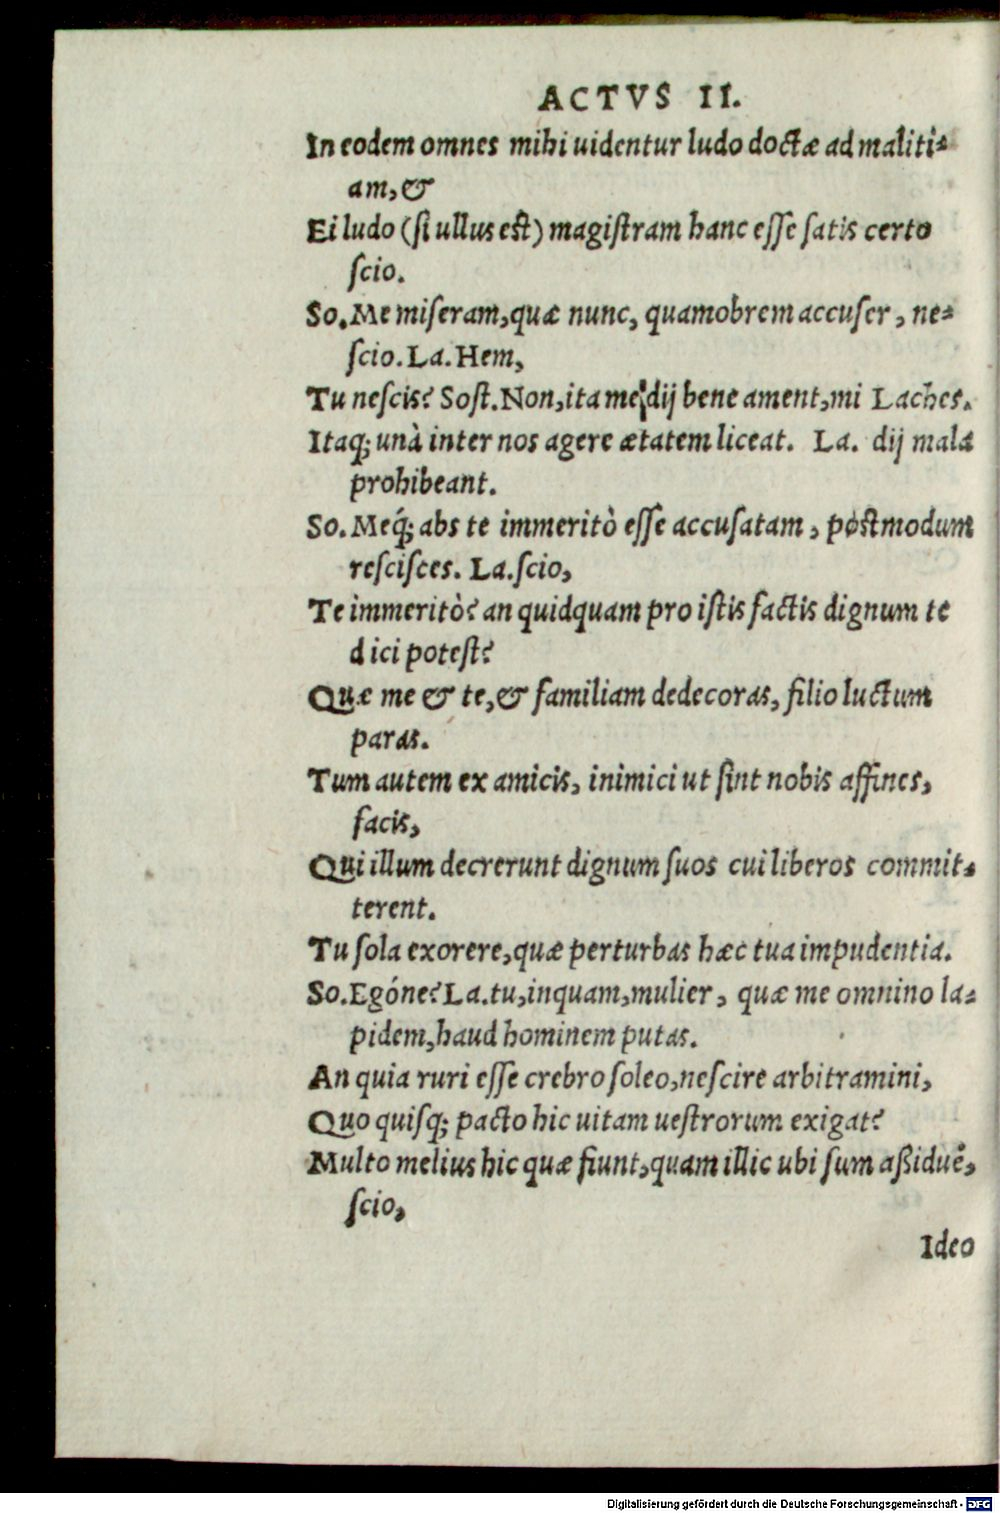 ACTVS II.
In eodem omnes mihi uidentur ludo doctæ ad maliti-
am, &
Ei ludo (si ullus est) magistram hanc esse satis certo
scio.
So. Me miseram, quæ nunc, quamobrem accuser, ne-
scio. La. Hem,
Tu nescis? Sost. Non, ita me dij bene ament, mi Laches.
Itaq; unà inter nos agere ætatem liceat. La. dij mala
prohibeant.
So. Meq́; abs te immeritò esse accusatam, postmodum
rescisces. La. scio,
Te immeritò? an quidquam pro istis factis dignum te
dici potest?
Quæ me & te, & familiam dedecoras, filio luctum
paras.
Tum autem ex amicis, inimici ut sint nobis affines,
facis,
Qui illum decrerunt dignum suos cui liberos commit-
terent.
Tu sola exorere, quæ perturbas hæc tua impudentia.
So. Egóne? La. tu, inquam, mulier, quæ me omnino la-
pidem, haud hominem putas.
An quia ruri esse crebro soleo, nescire arbitramini,
Quo quisq; pacto hic uitam uestrorum exigat?
Multo melius hic quæ fiunt, quam illic ubi sum aßiduè,
scio,
Ideo
Digitalisierung gefördert durch die Deutsche Forschungsgemeinschaft - DFG